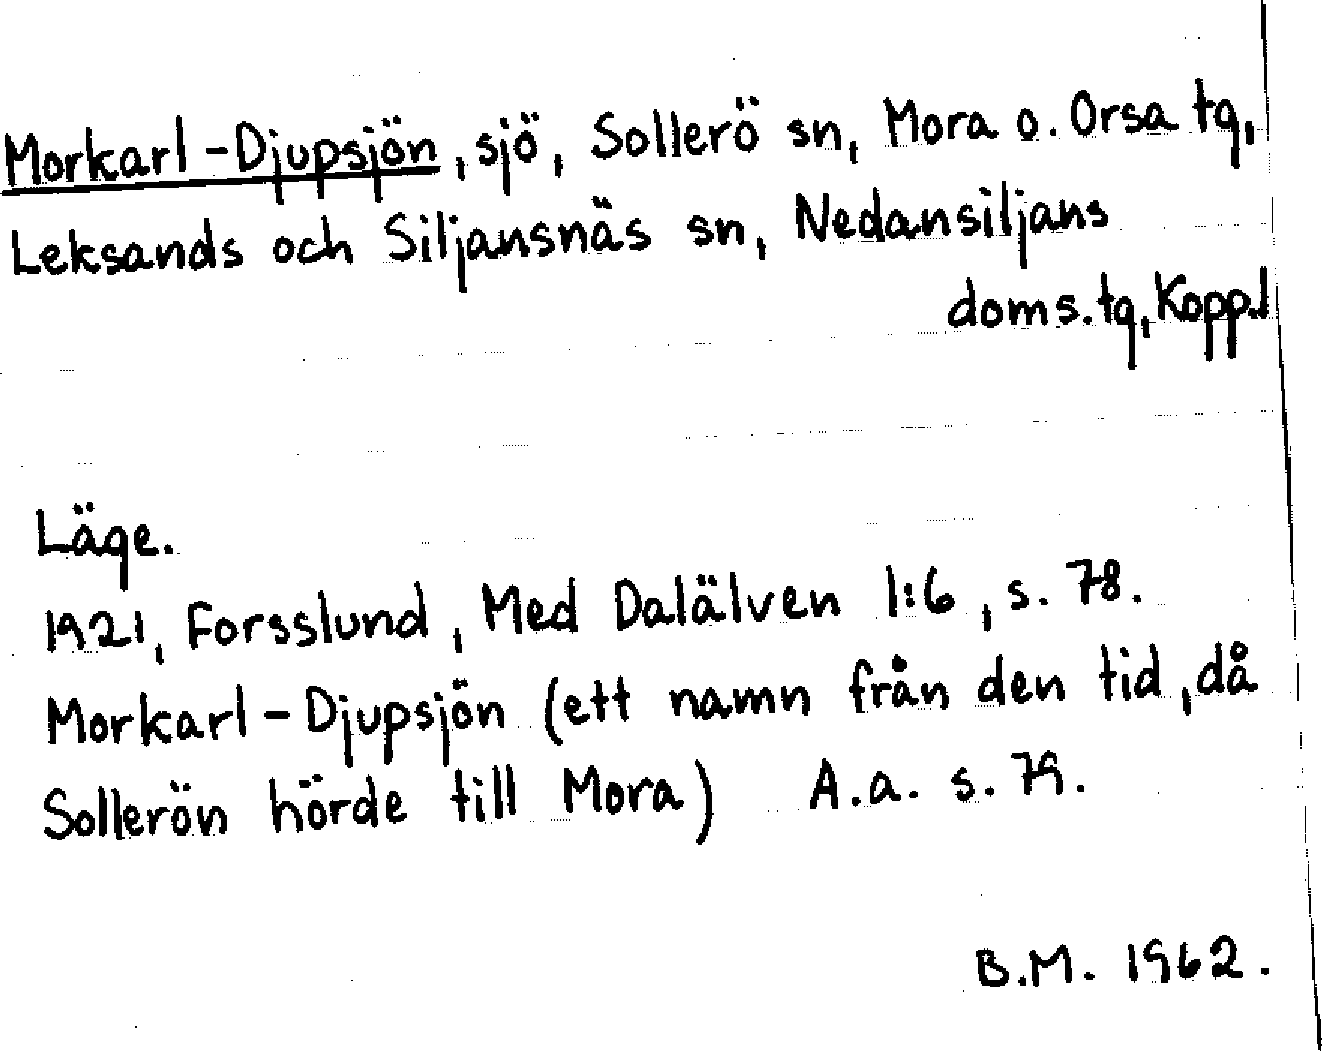 Morkarl-Djupsjön, sjö, Sollerö sn, Mora o. Orsa tg,
Leksands och Siljansnäs sn, Nedansiljans
doms.tg, Kopp.l
Läge.
1921, Forsslund, Med Dalälven 1:6, s. 78.
Morkarl-Djupsjön (ett namn från den tid, då
Sollerön hörde till Mora) A.a. s. 79.
B.M. 1962.